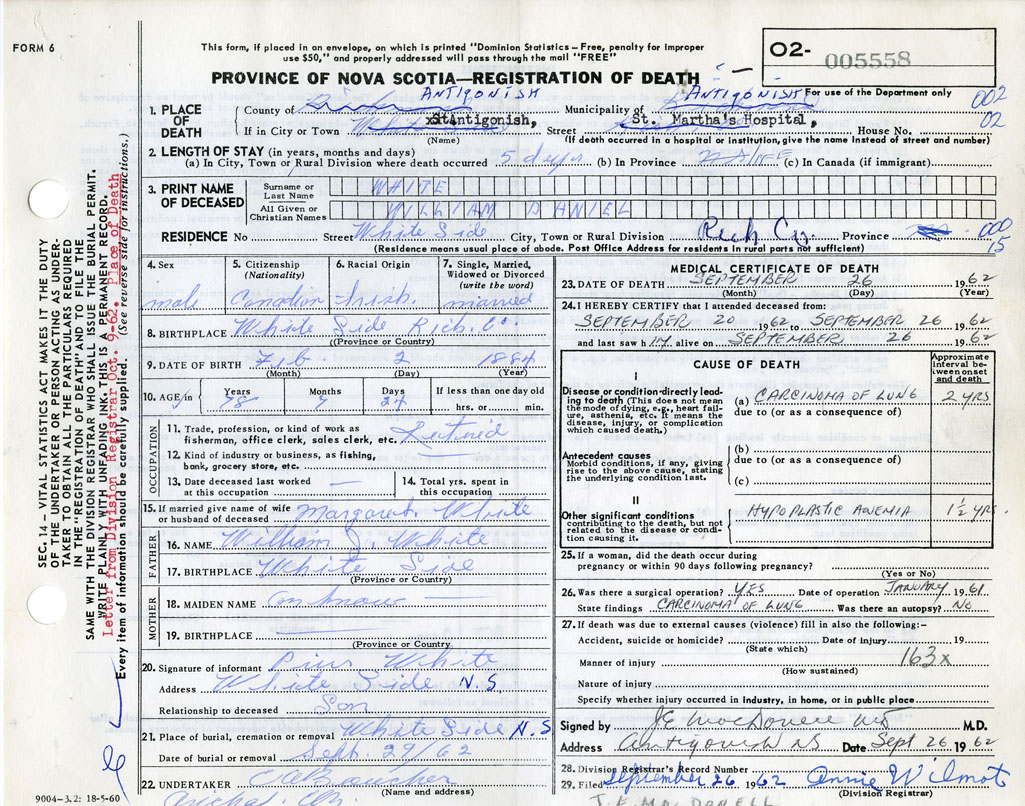 FORM 6
This form, if placed in an envelope, on which is printed "Dominion Statistics – Free, penalty for improper
use $50," and properly addressed will pass through the mail "FREE"
O2- 005558
PROVINCE OF NOVA SCOTIA—REGISTRATION OF DEATH
For use of the Department only
1. PLACE OF DEATH
County of ANTIGONISH Municipality of ANTIGONISH 002
If in City or Town xStAntigonish, Street St. Martha's Hospital, House No. 02
(Name) (If death occurred in a hospital or institution, give the name instead of street and number)
2. LENGTH OF STAY (in years, months and days)
(a) In City, Town or Rural Division where death occurred 5 days (b) In Province (c) In Canada (if immigrant)
3. PRINT NAME OF DECEASED
Surname or Last Name WHITE
All Given or Christian Names WILLIAM DANIEL
RESIDENCE No Street White Side City, Town or Rural Division Rich Co. Province 000
15
(Residence means usual place of abode. Post Office Address for residents in rural parts not sufficient)
4. Sex male
5. Citizenship (Nationality) Canadian
6. Racial Origin Irish.
7. Single, Married, Widowed or Divorced (write the word) married
8. BIRTHPLACE White Side Rich. Co.
(Province or Country)
9. DATE OF BIRTH Feb 2 1884
(Month) (Day) (Year)
10. AGE in Years 78 Months 7 Days 24 If less than one day old hrs. or min.
OCCUPATION
11. Trade, profession, or kind of work as fisherman, office clerk, sales clerk, etc. Retired
12. Kind of industry or business, as fishing, bank, grocery store, etc. —
13. Date deceased last worked at this occupation —
14. Total yrs. spent in this occupation
15. If married give name of wife or husband of deceased Margaret White
FATHER
16. NAME William J. White
17. BIRTHPLACE White Side
(Province or Country)
MOTHER
18. MAIDEN NAME —
19. BIRTHPLACE —
(Province or Country)
20. Signature of informant Pius White
Address White Side N.S
Relationship to deceased Son
21. Place of burial, cremation or removal White Side N.S
Date of burial or removal Sept. 29/62
22. UNDERTAKER
(Name and address)
MEDICAL CERTIFICATE OF DEATH
23. DATE OF DEATH SEPTEMBER 26 1962
(Month) (Day) (Year)
24. I HEREBY CERTIFY that I attended deceased from:
SEPTEMBER 20 1962 to SEPTEMBER 26 1962
and last saw him alive on SEPTEMBER 26 1962
CAUSE OF DEATH
Approximate interval between onset and death
I
Disease or condition directly leading to death (This does not mean the mode of dying, e.g., heart failure, asthenia, etc. It means the disease, injury, or complication which caused death.)
(a) CARCINOMA OF LUNG 2 YRS
due to (or as a consequence of)
Antecedent causes
Morbid conditions, if any, giving rise to the above cause, stating the underlying condition last.
(b)
due to (or as a consequence of)
(c)
II
Other significant conditions
contributing to the death, but not related to the disease or condition causing it.
HYPOPLASTIC ANEMIA 1½ YRS
25. If a woman, did the death occur during
pregnancy or within 90 days following pregnancy?
(Yes or No)
26. Was there a surgical operation? YES Date of operation JANUARY 1961
State findings CARCINOMA OF LUNG Was there an autopsy? NO
27. If death was due to external causes (violence) fill in also the following:–
Accident, suicide or homicide? Date of injury 19
(State which)
Manner of injury 163x
(How sustained)
Nature of injury
Specify whether injury occurred in industry, in home, or in public place
Signed by J.E. MacDonell MD M.D.
Address Antigonish NS Date Sept 26 1962
28. Division Registrar's Record Number
29. Filed September 26 1962 Annie Wilmot
(Division Registrar)
J.E. MACDONELL
SEC. 14 — VITAL STATISTICS ACT MAKES IT THE DUTY
OF THE UNDERTAKER OR PERSON ACTING AS UNDER-
TAKER TO OBTAIN ALL THE PARTICULARS REQUIRED
IN THE "REGISTRATION OF DEATH" AND TO FILE THE
SAME WITH THE DIVISION REGISTRAR WHO SHALL ISSUE THE BURIAL PERMIT.
WRITE PLAINLY WITH UNFADING INK. THIS IS A PERMANENT RECORD.
Letter from Division Registrar Oct. 9-62. Place of Death
Every item of information should be carefully supplied. (See reverse side for instructions.)
9004—3.2: 18-5-60